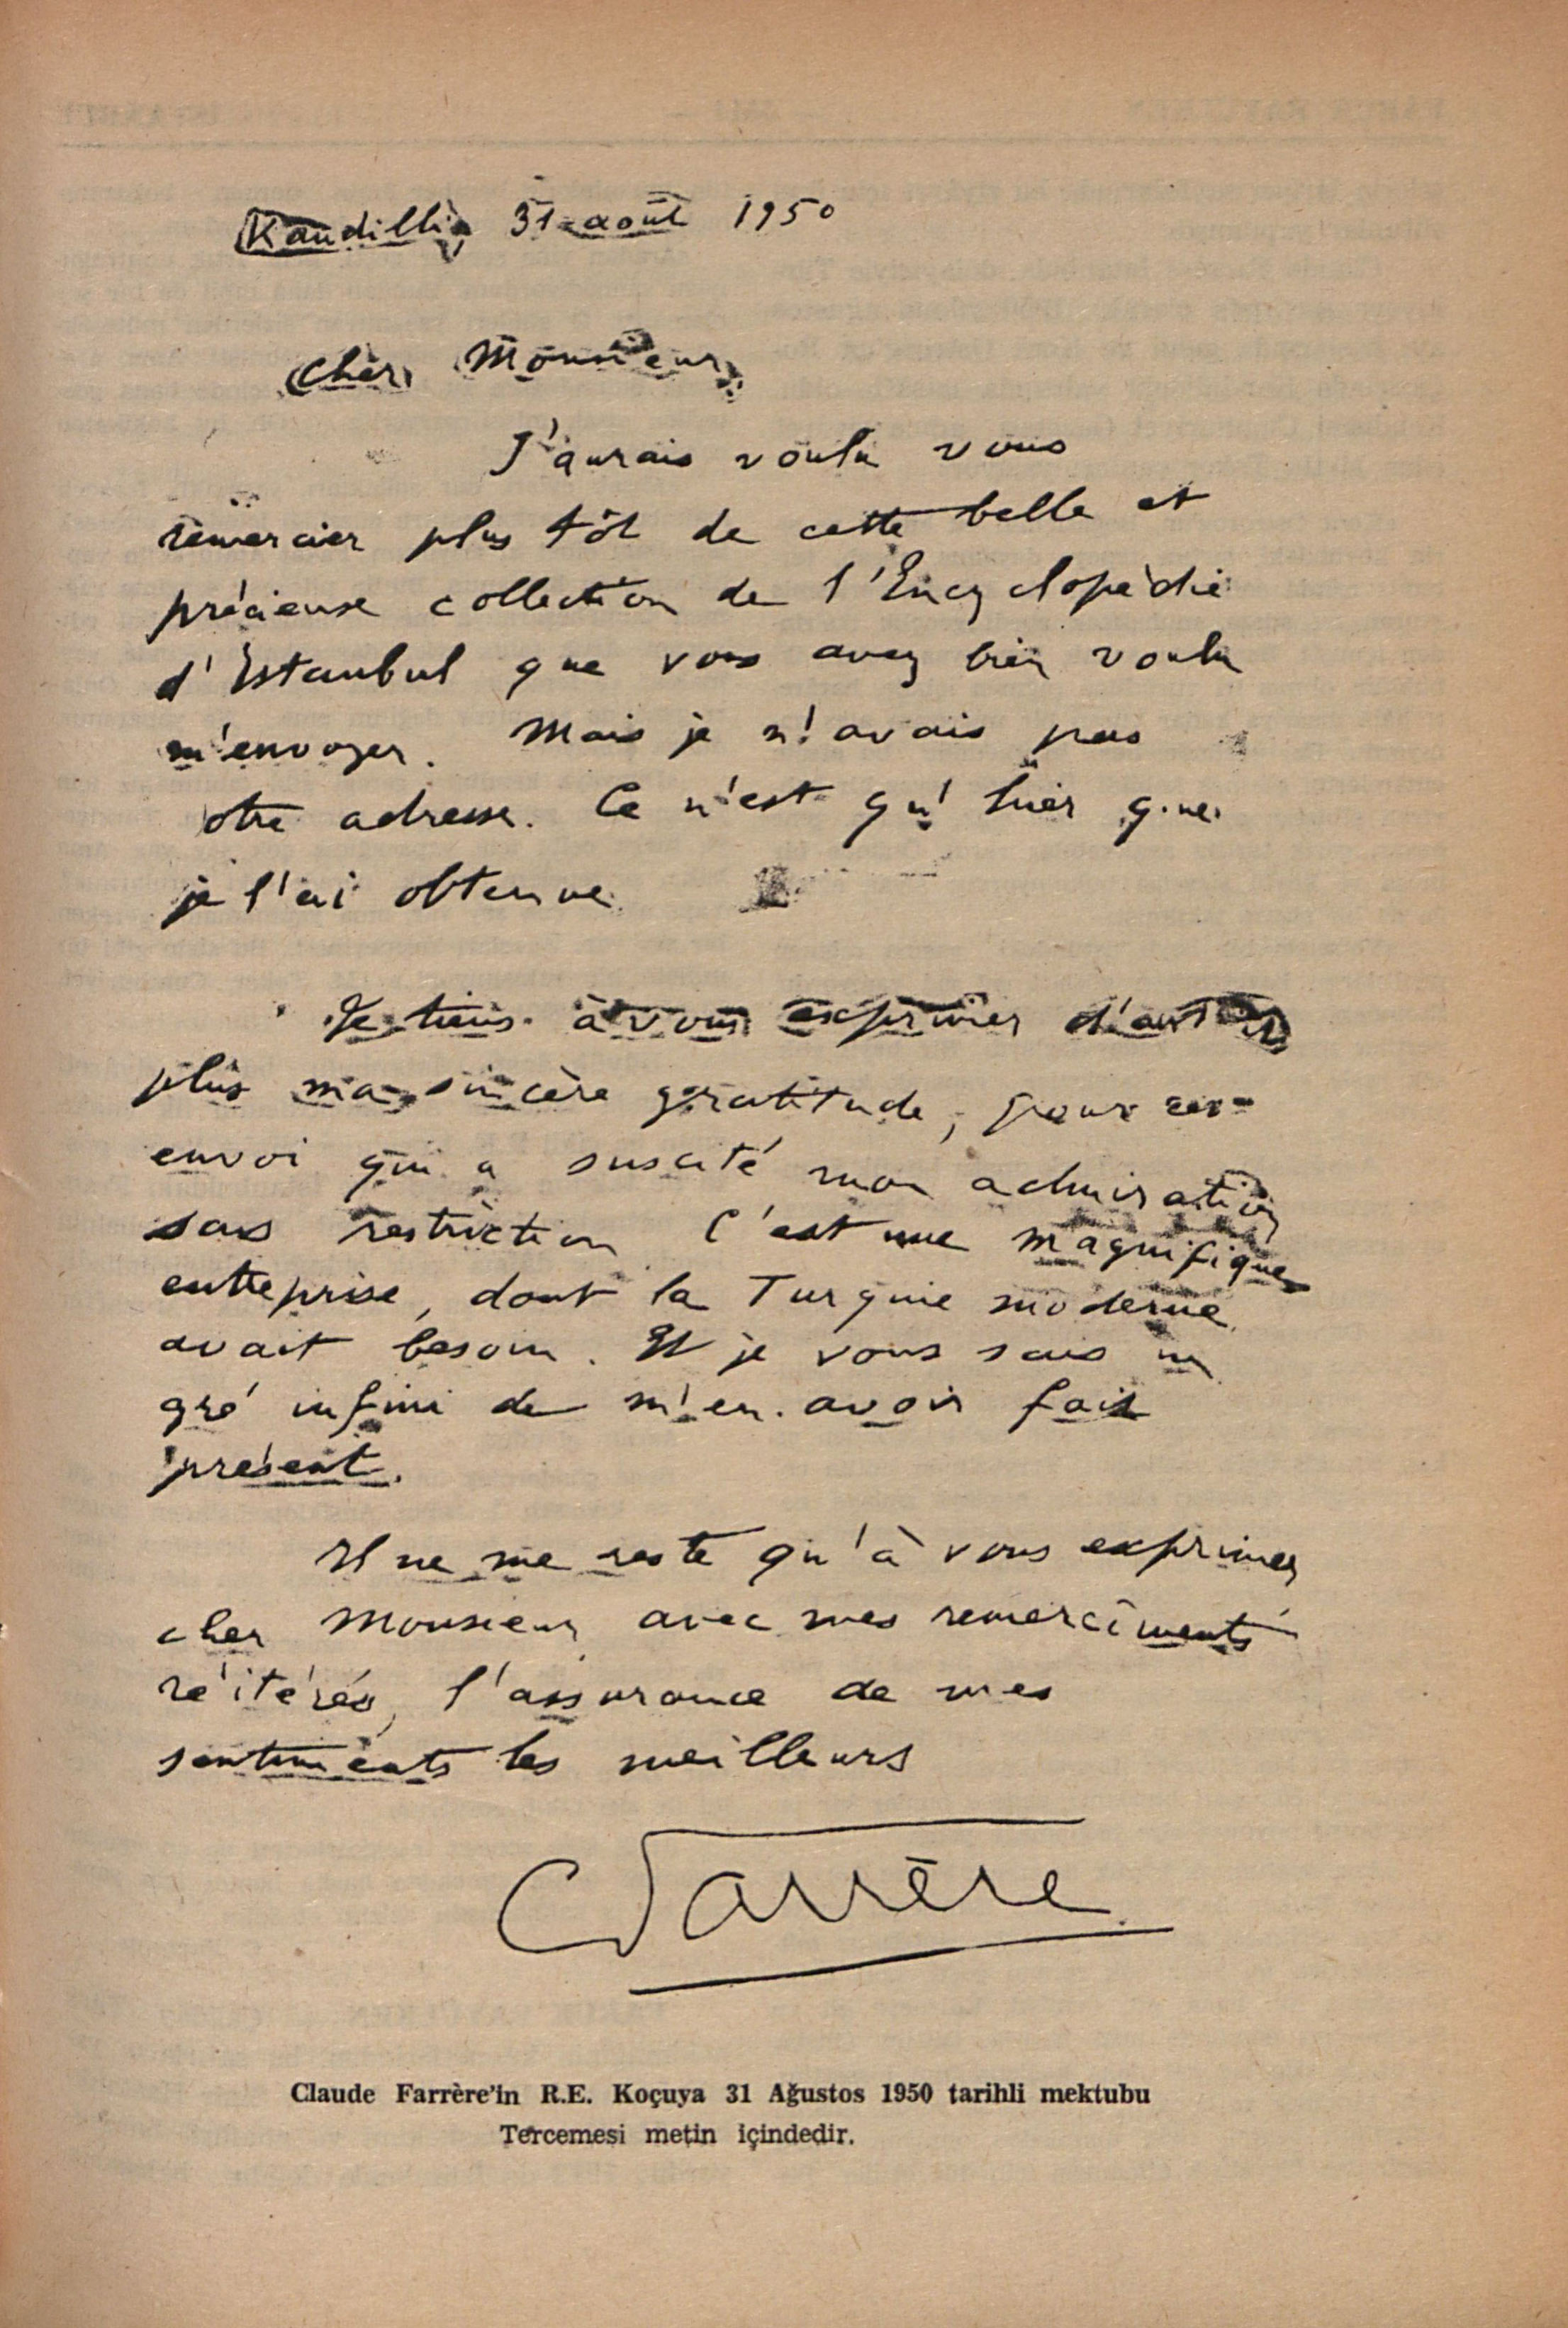 Kandilli, 31 août 1950
Cher Monsieur,
J'aurais voulu vous
remercier plus tôt de cette belle et
précieuse collection de l'Encyclopédie
d'Istanbul que vous avez bien voulu
m'envoyer. Mais je n'avais pas
otre adresse. Ce n'est qu'hier que
je l'ai obtenue
Je tiens à vous exprimer d'autant
plus ma sincère gratitude, pour cet
envoi qui a suscité mon admiration
sans restriction C'est une magnifique
entreprise, dont la Turquie moderne
avait besoin. Et je vous sais un
gré infini de m'en avoir fait
présent.
Il ne me reste qu'à vous exprimer
cher Monsieur, avec mes remercîments
réitérés, l'assurance de mes
sentiments les meilleurs
C Farrère
Claude Farrère'in R.E. Koçuya 31 Ağustos 1950 tarihli mektubu
Tercemesi metin içindedir.